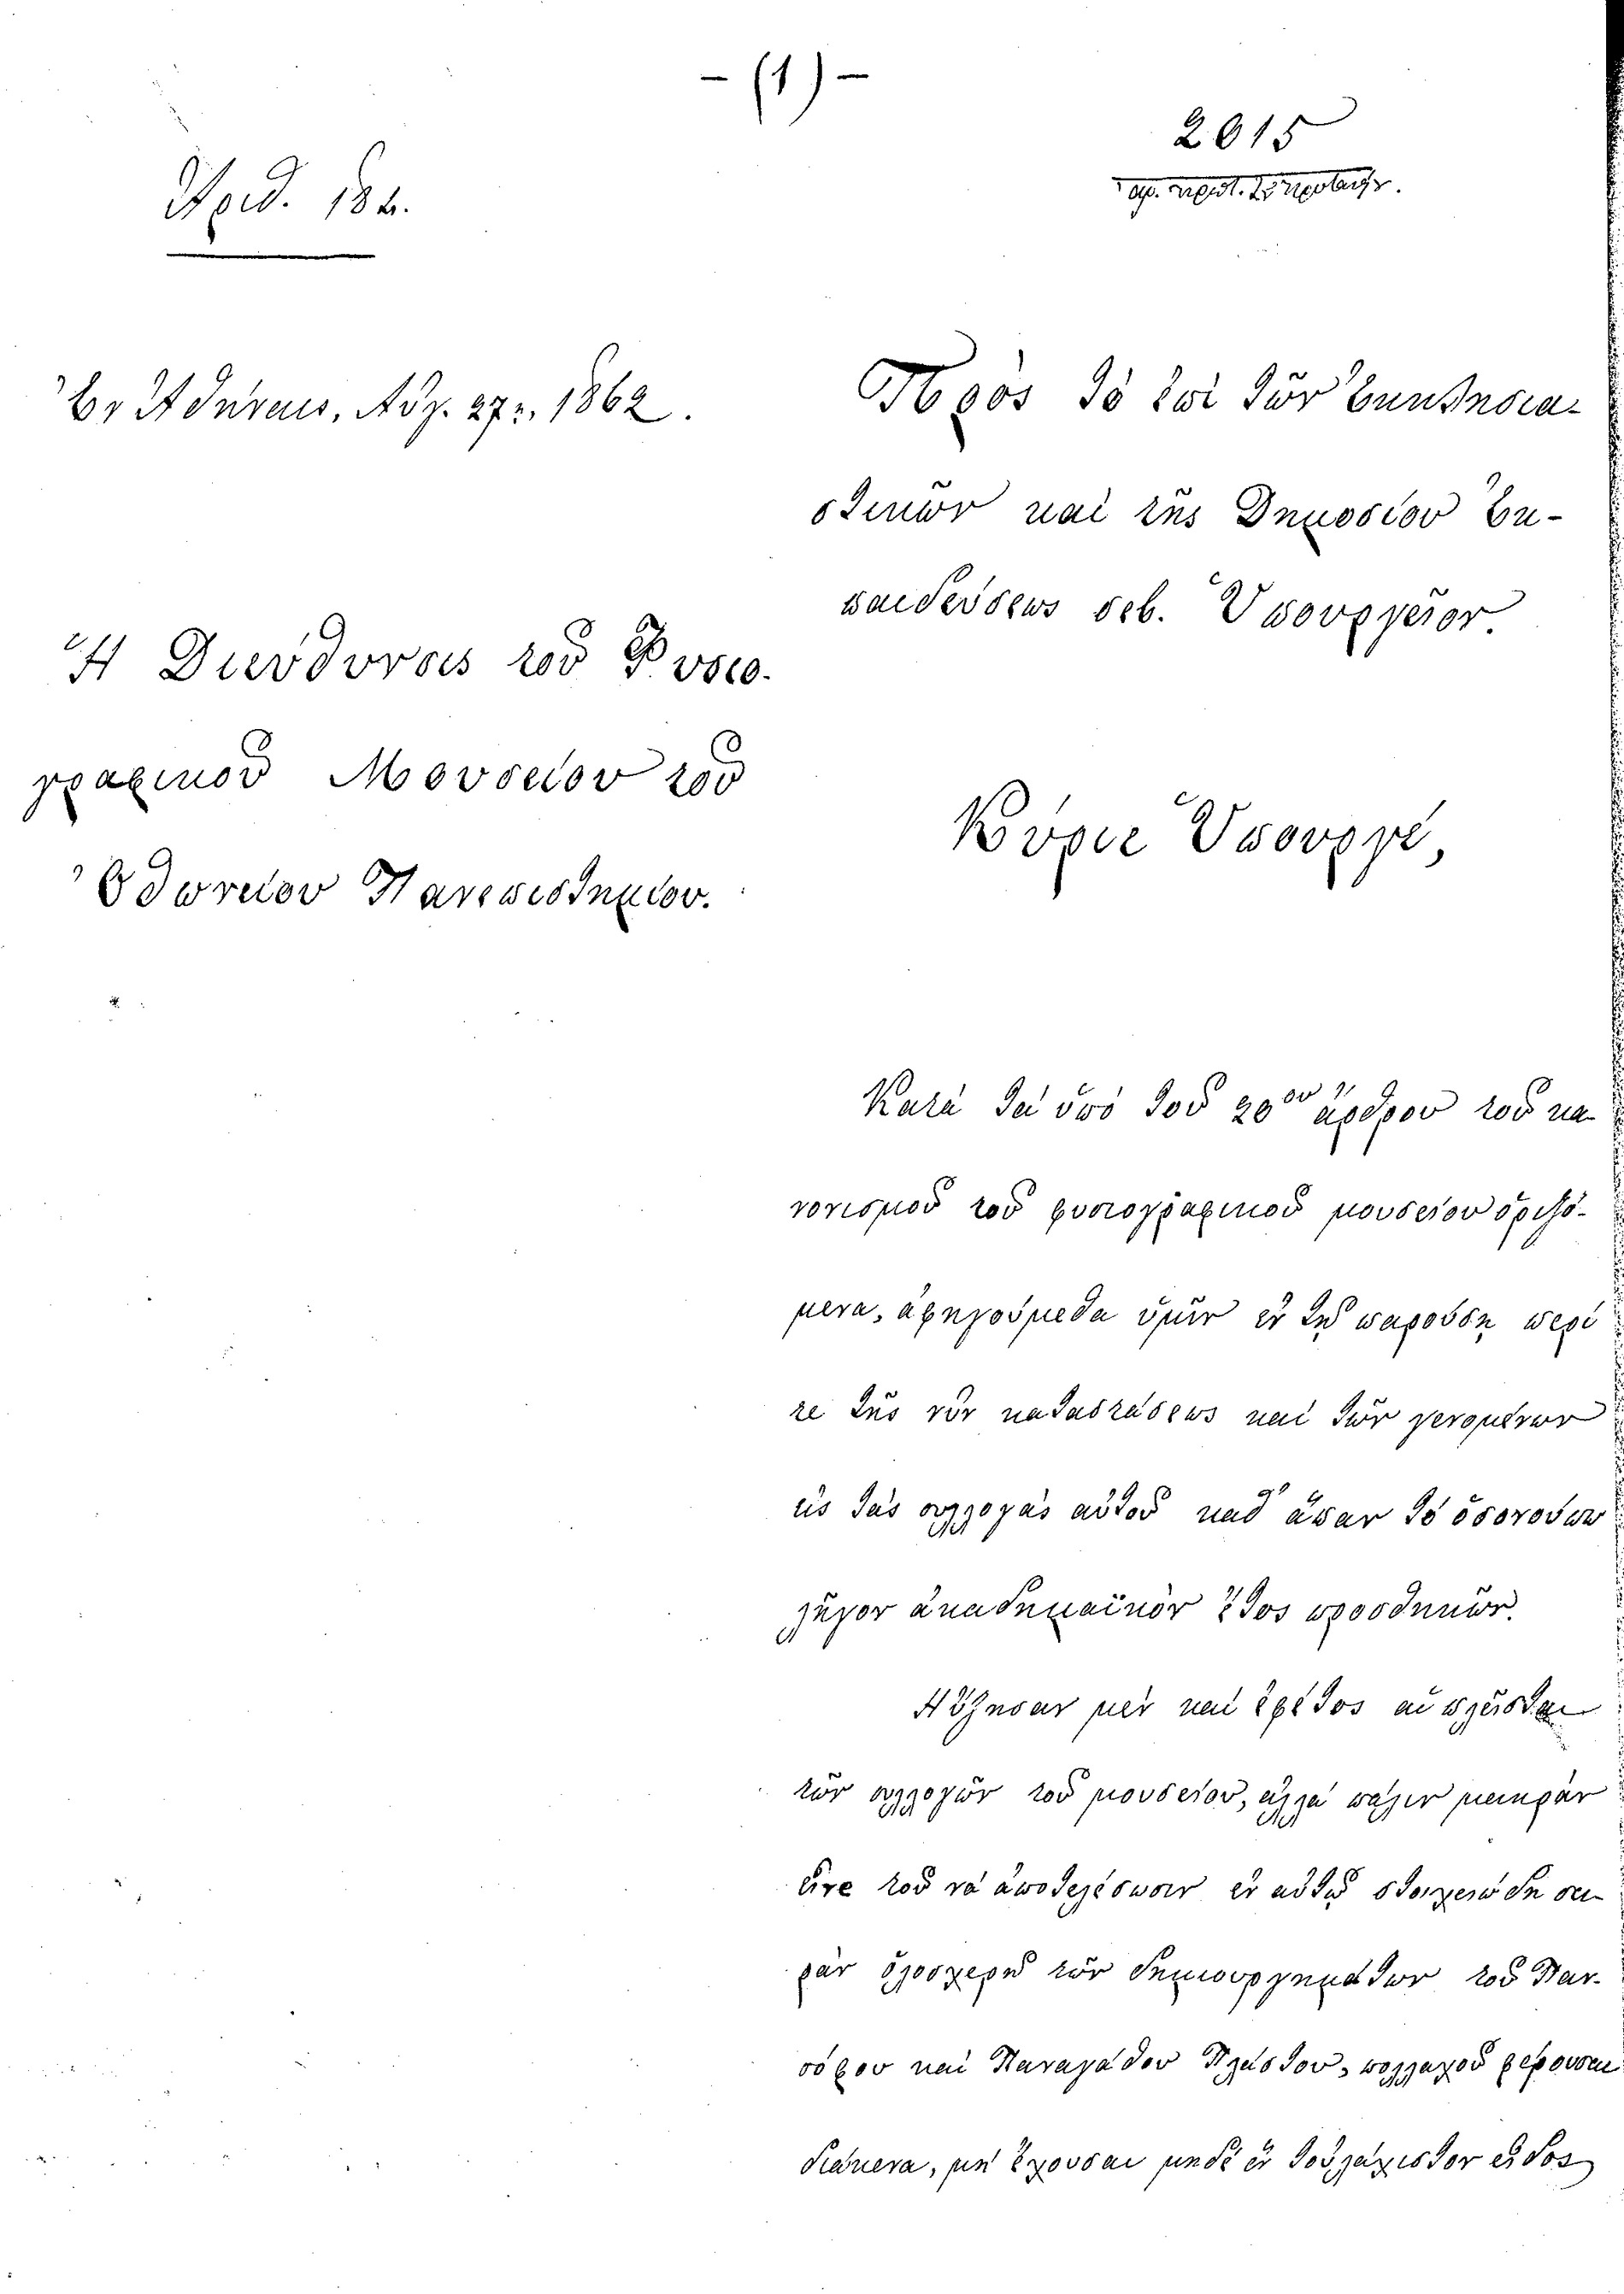 - (1) -
2015
Ἀριθ. 182.
Ἐν Ἀθήναις, Αὐγ. 27η, 1862.
Πρὸς τὸ ἐπὶ τῶν Ἐκκλησια-
στικῶν καὶ τῆς Δημοσίου Ἐκ-
παιδεύσεως σεβ. Ὑπουργεῖον.
Ἡ Διεύθυνσις τοῦ Φυσιο-
γραφικοῦ Μουσείου τοῦ
Ὀθωνείου Πανεπιστημίου.
Κύριε Ὑπουργέ,
Κατὰ τὰ ὑπὸ τοῦ 20οῦ ἄρθρου τοῦ κα-
νονισμοῦ τοῦ φυσιογραφικοῦ μουσείου ὁριζό-
μενα, ἀφηγούμεθα ὑμῖν ἐν τῷ παρόντι περί
τε τῆς νῦν καταστάσεως καὶ τῶν γενομένων
εἰς τὰς συλλογὰς αὐτοῦ καθ' ἅπαν τὸ
ἀκαδημαϊκὸν ἔτος προσθηκῶν.
Ηὔξησαν μὲν καὶ ἐφέτος αἱ πλεῖσται
τῶν συλλογῶν τοῦ μουσείου, ἀλλὰ πάλιν μακρὰν
εἶνε τοῦ νὰ ἀποτελέσωσιν ἐν αὐτῷ στοιχειώδη σει-
ρὰν ὁλοσχερῆ τῶν δημιουργημάτων τοῦ Παν-
σόφου καὶ Παναγάθου Πλάστου, πολλαχοῦ φέρουσαι
διάκενα, μὴ ἔχουσαι μηδὲ ἐν τοὐλάχιστον εἶδος